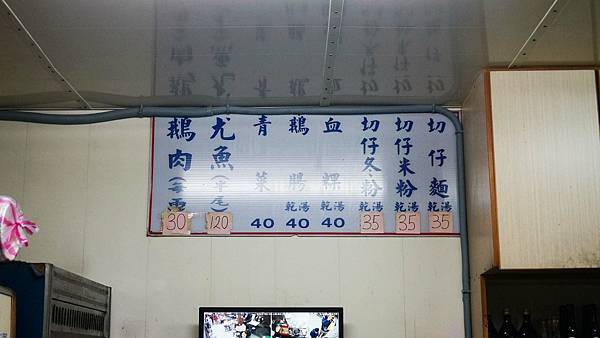 切仔麵 乾湯 35
切仔米粉 乾湯 35
切仔冬粉 乾湯 35
血粿 乾湯 40
鵝腸 乾湯 40
青菜 40
尤魚(半尾) 120
鵝肉 30